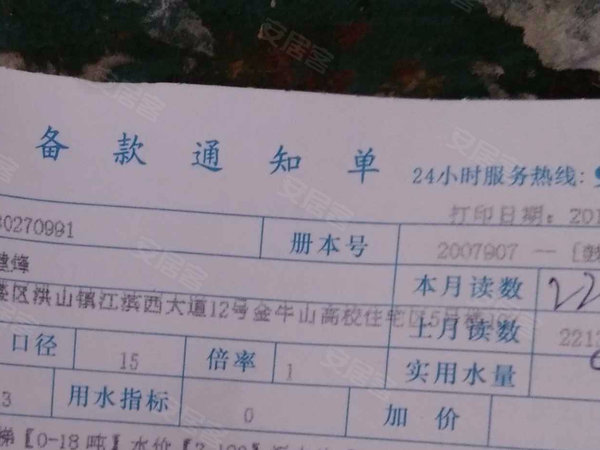 备款通知单
24小时服务热线:
打印日期: 201
30270991 册本号 2007907 — [鼓
建烽 本月读数 22
楼区洪山镇江滨西大道12号金牛山高校住宅区5号楼107
上月读数 221
口径 15 倍率 1 实用水量
3 用水指标 0 加价
梯【0-18吨】水价
安居客